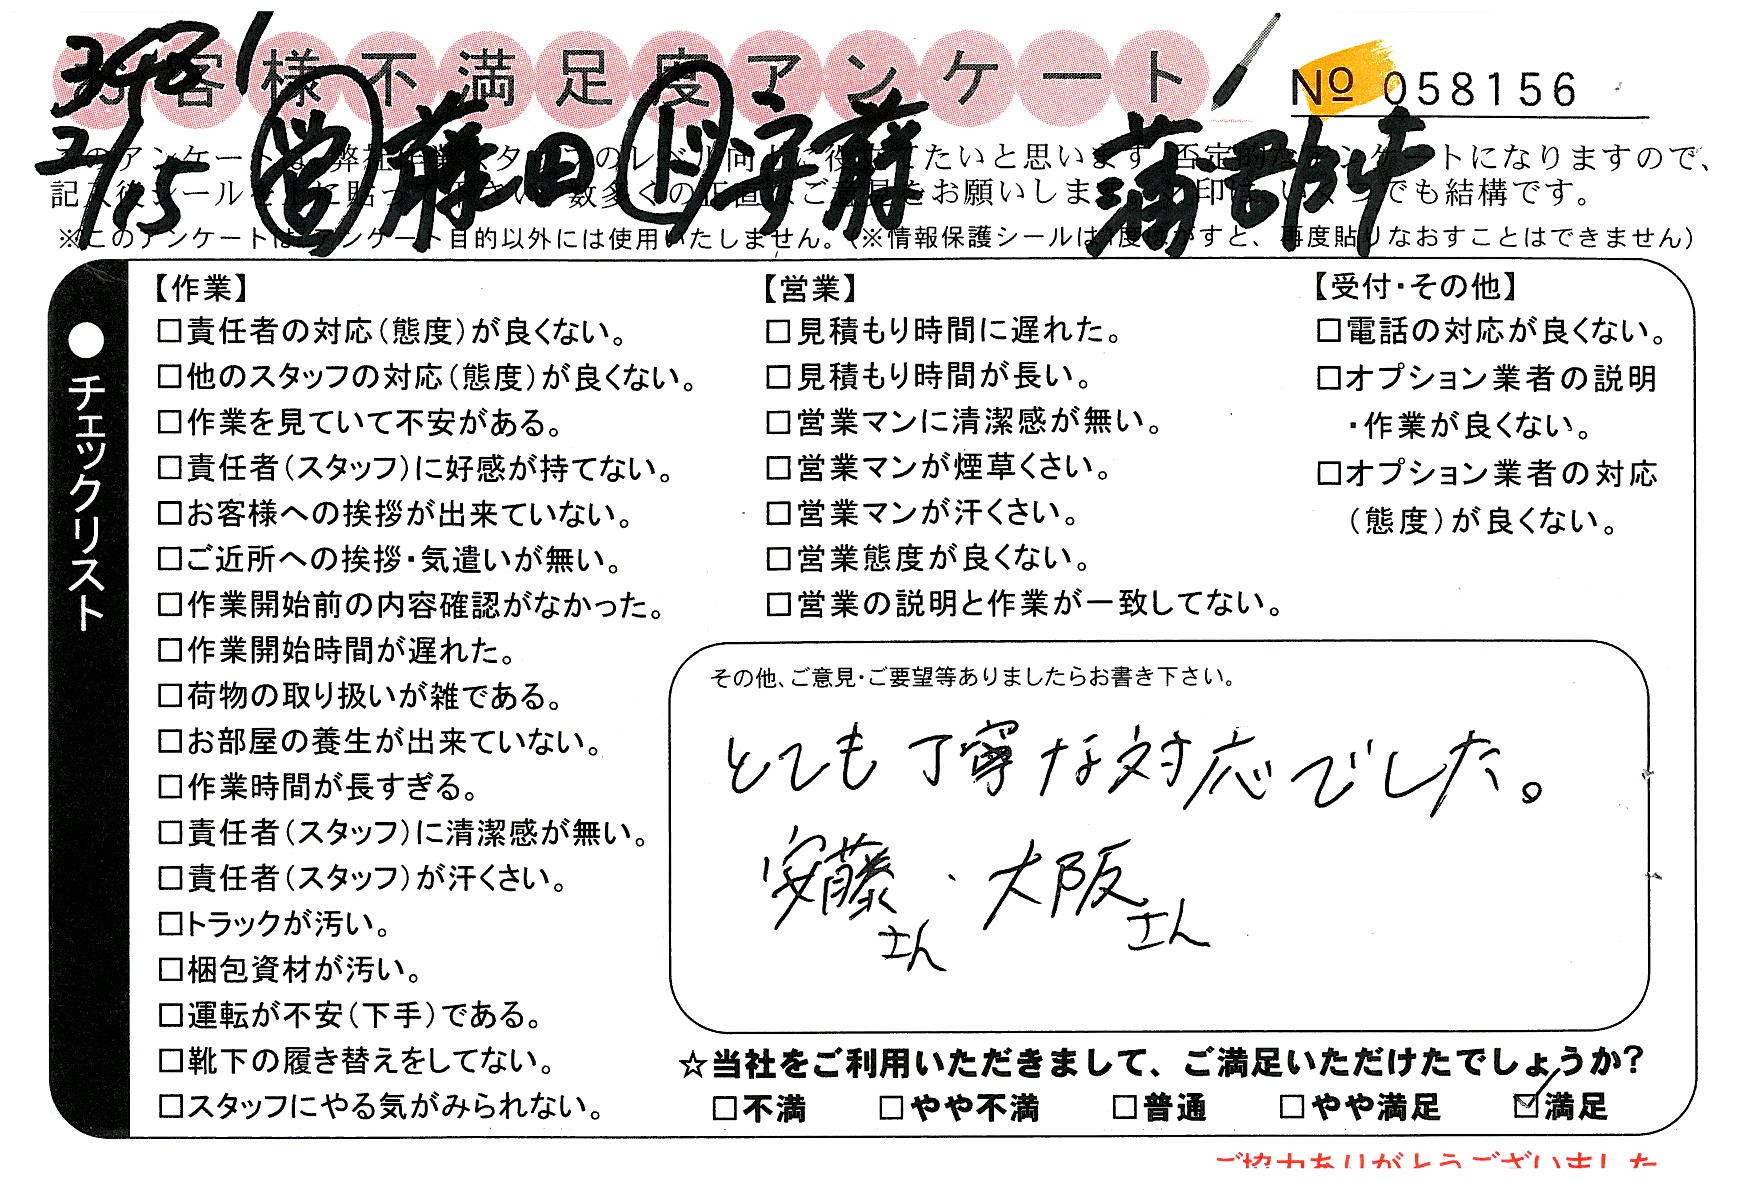 お客様不満足度アンケート
№ 058156
2/15 ㊢ 藤田 ㋣ 安藤 蒲郡沖
このアンケートは、弊社作業スタッフのレベル向上に役立てたいと思います。否定的なアンケートになりますので、
記入後シールを上に貼って下さい。数多くの正直なご意見をお願いします。レ印は、いくつでも結構です。
※このアンケートは、アンケート目的以外には使用いたしません。(※情報保護シールは1度はがすと、再度貼りなおすことはできません)
●チェックリスト
【作業】
□責任者の対応(態度)が良くない。
□他のスタッフの対応(態度)が良くない。
□作業を見ていて不安がある。
□責任者(スタッフ)に好感が持てない。
□お客様への挨拶が出来ていない。
□ご近所への挨拶・気遣いが無い。
□作業開始前の内容確認がなかった。
□作業開始時間が遅れた。
□荷物の取り扱いが雑である。
□お部屋の養生が出来ていない。
□作業時間が長すぎる。
□責任者(スタッフ)に清潔感が無い。
□責任者(スタッフ)が汗くさい。
□トラックが汚い。
□梱包資材が汚い。
□運転が不安(下手)である。
□靴下の履き替えをしてない。
□スタッフにやる気がみられない。
【営業】
□見積もり時間に遅れた。
□見積もり時間が長い。
□営業マンに清潔感が無い。
□営業マンが煙草くさい。
□営業マンが汗くさい。
□営業態度が良くない。
□営業の説明と作業が一致してない。
【受付・その他】
□電話の対応が良くない。
□オプション業者の説明
・作業が良くない。
□オプション業者の対応
(態度)が良くない。
その他、ご意見・ご要望等ありましたらお書き下さい。
とても丁寧な対応でした。
安藤さん・大阪さん
☆当社をご利用いただきまして、ご満足いただけたでしょうか?
□不満 □やや不満 □普通 □やや満足 ☑満足
ご協力ありがとうございました